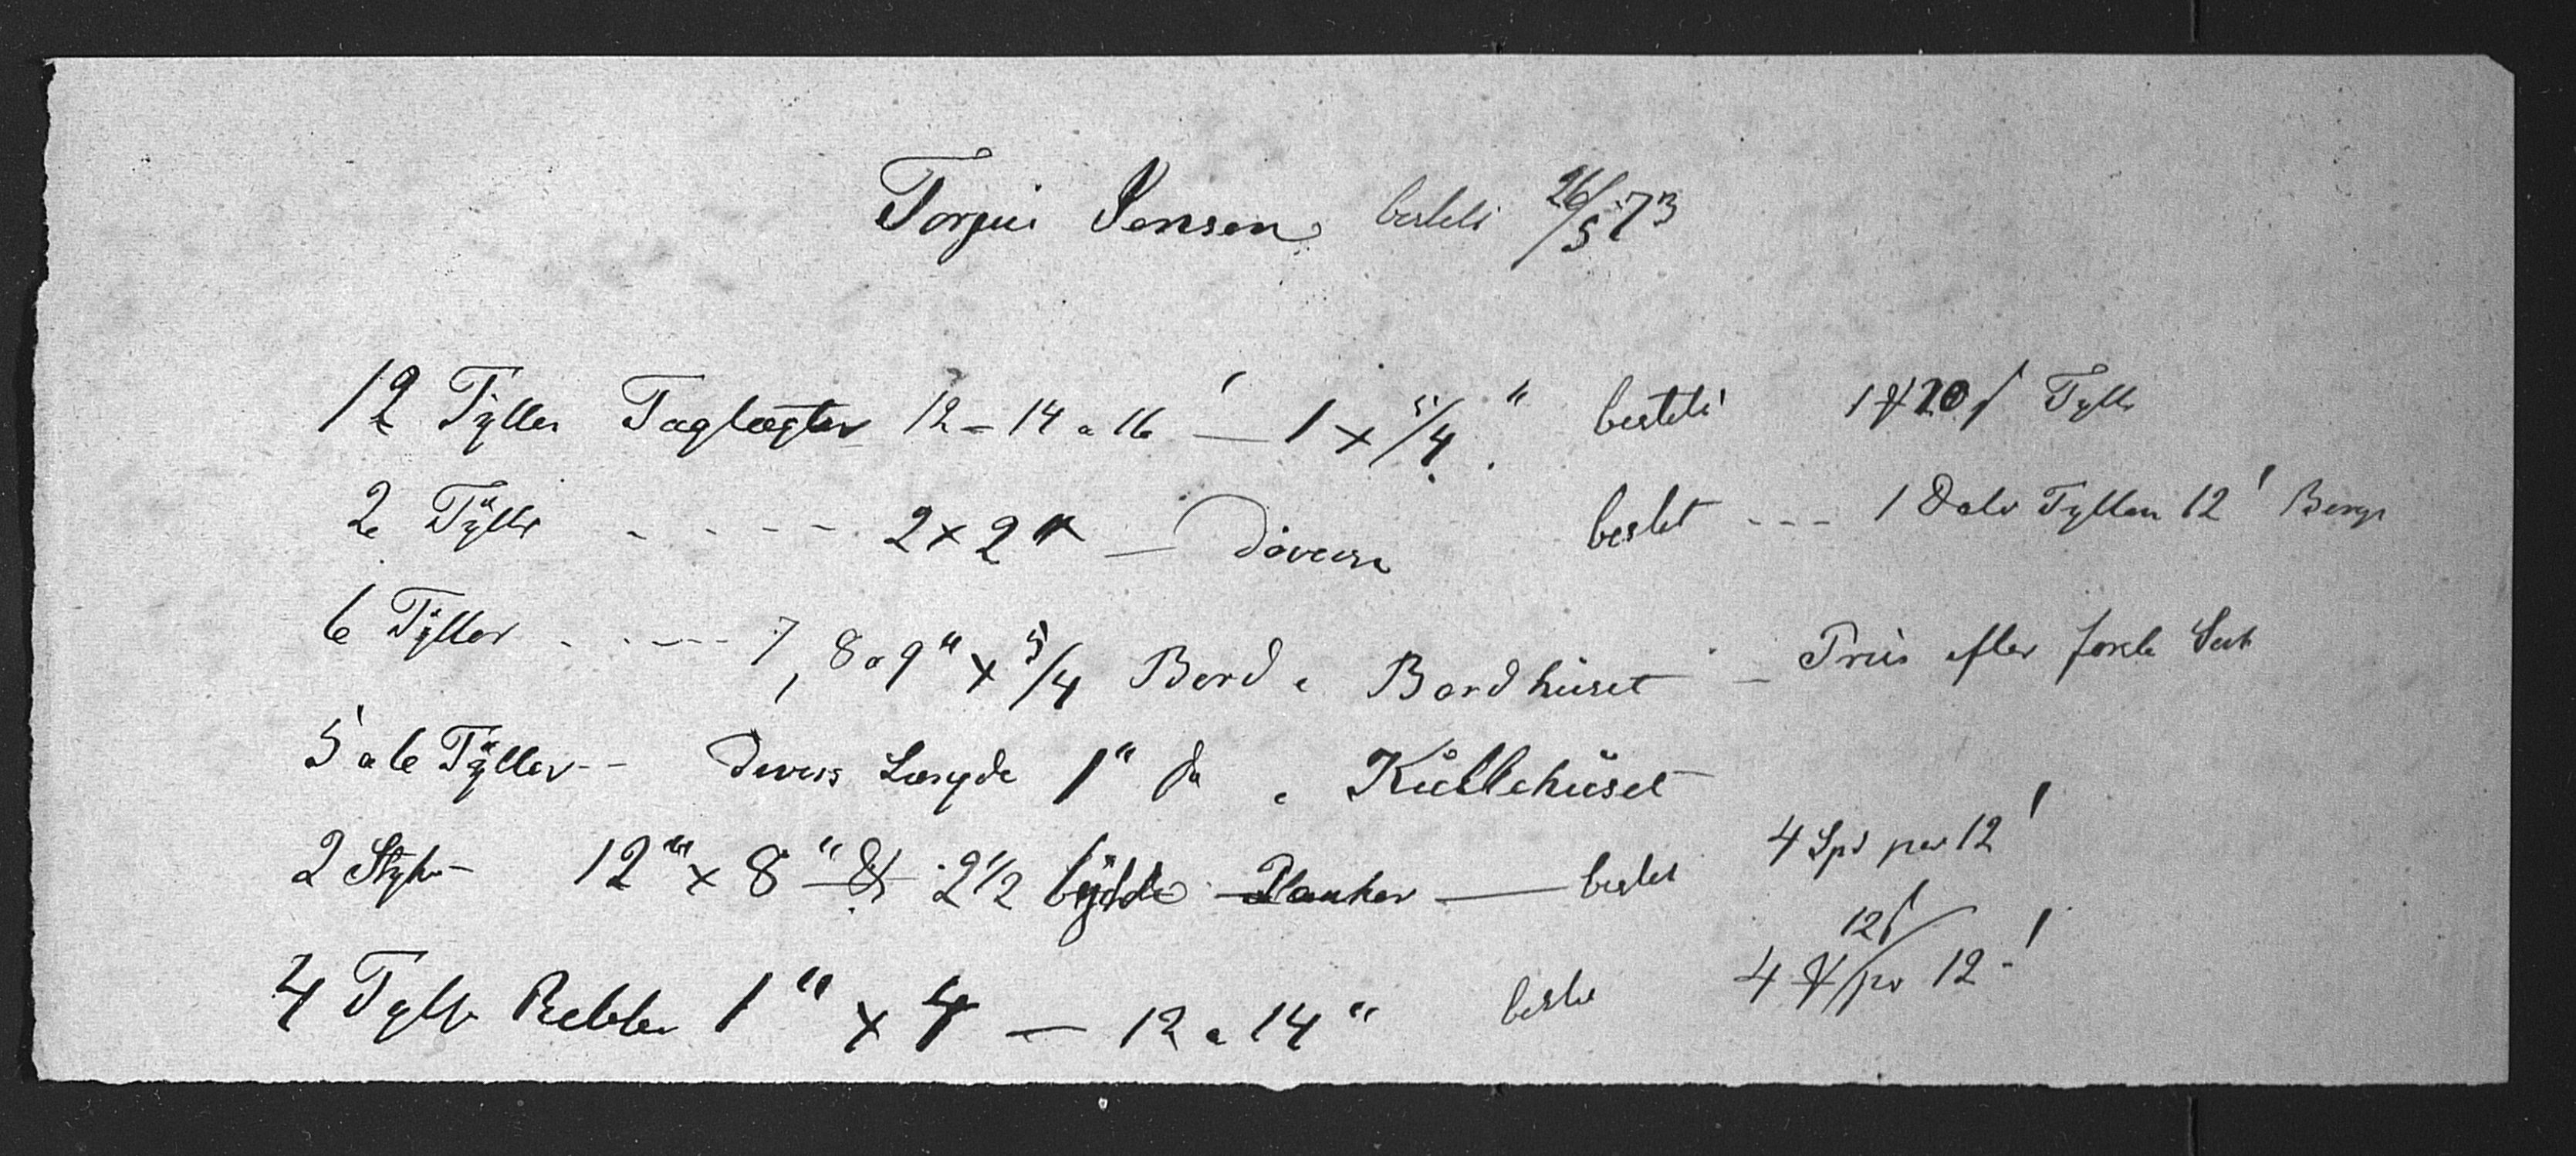 Torjus Jensen bestilt 26/5 73
12 Tylter Taglægter 12 - 14 a 16' — 1 x 5/4" bestilt 1 20 Tylt
2 Tylte - - - - 2 x 2" — Diverse bestilt - - - 1 Daler Tylten 12'
6 Tylter - - - - 7, 8 a 9" x 5/4 Bord a Bordhuset — Priis efter
5 a 6 Tylter - - Divers Længde 1" do a Kullehuset
2 Stykr - 12" x 8" 2 1/2 Planker — bestilt 4 Spd per 12'
4 Tylt 1" x 4 — 12 a 14" bestilt 4 12 pr 12'